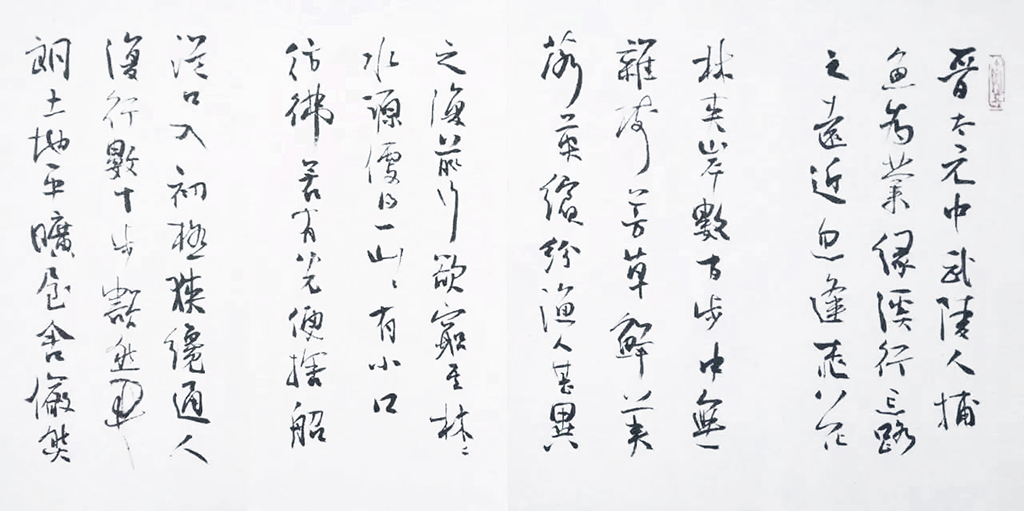 晉太元中武陵人捕
魚為業緣溪行忘路
之遠近忽逢桃花
林夾岸數百步中無
雜樹芳草鮮美
落英繽紛漁人甚異
之復前行欲窮其林〻
水源便得一山〻有小口
彷彿若有光便捨船
從口入初極狹纔通人
復行數十步豁然開
朗土地平曠屋舍儼然